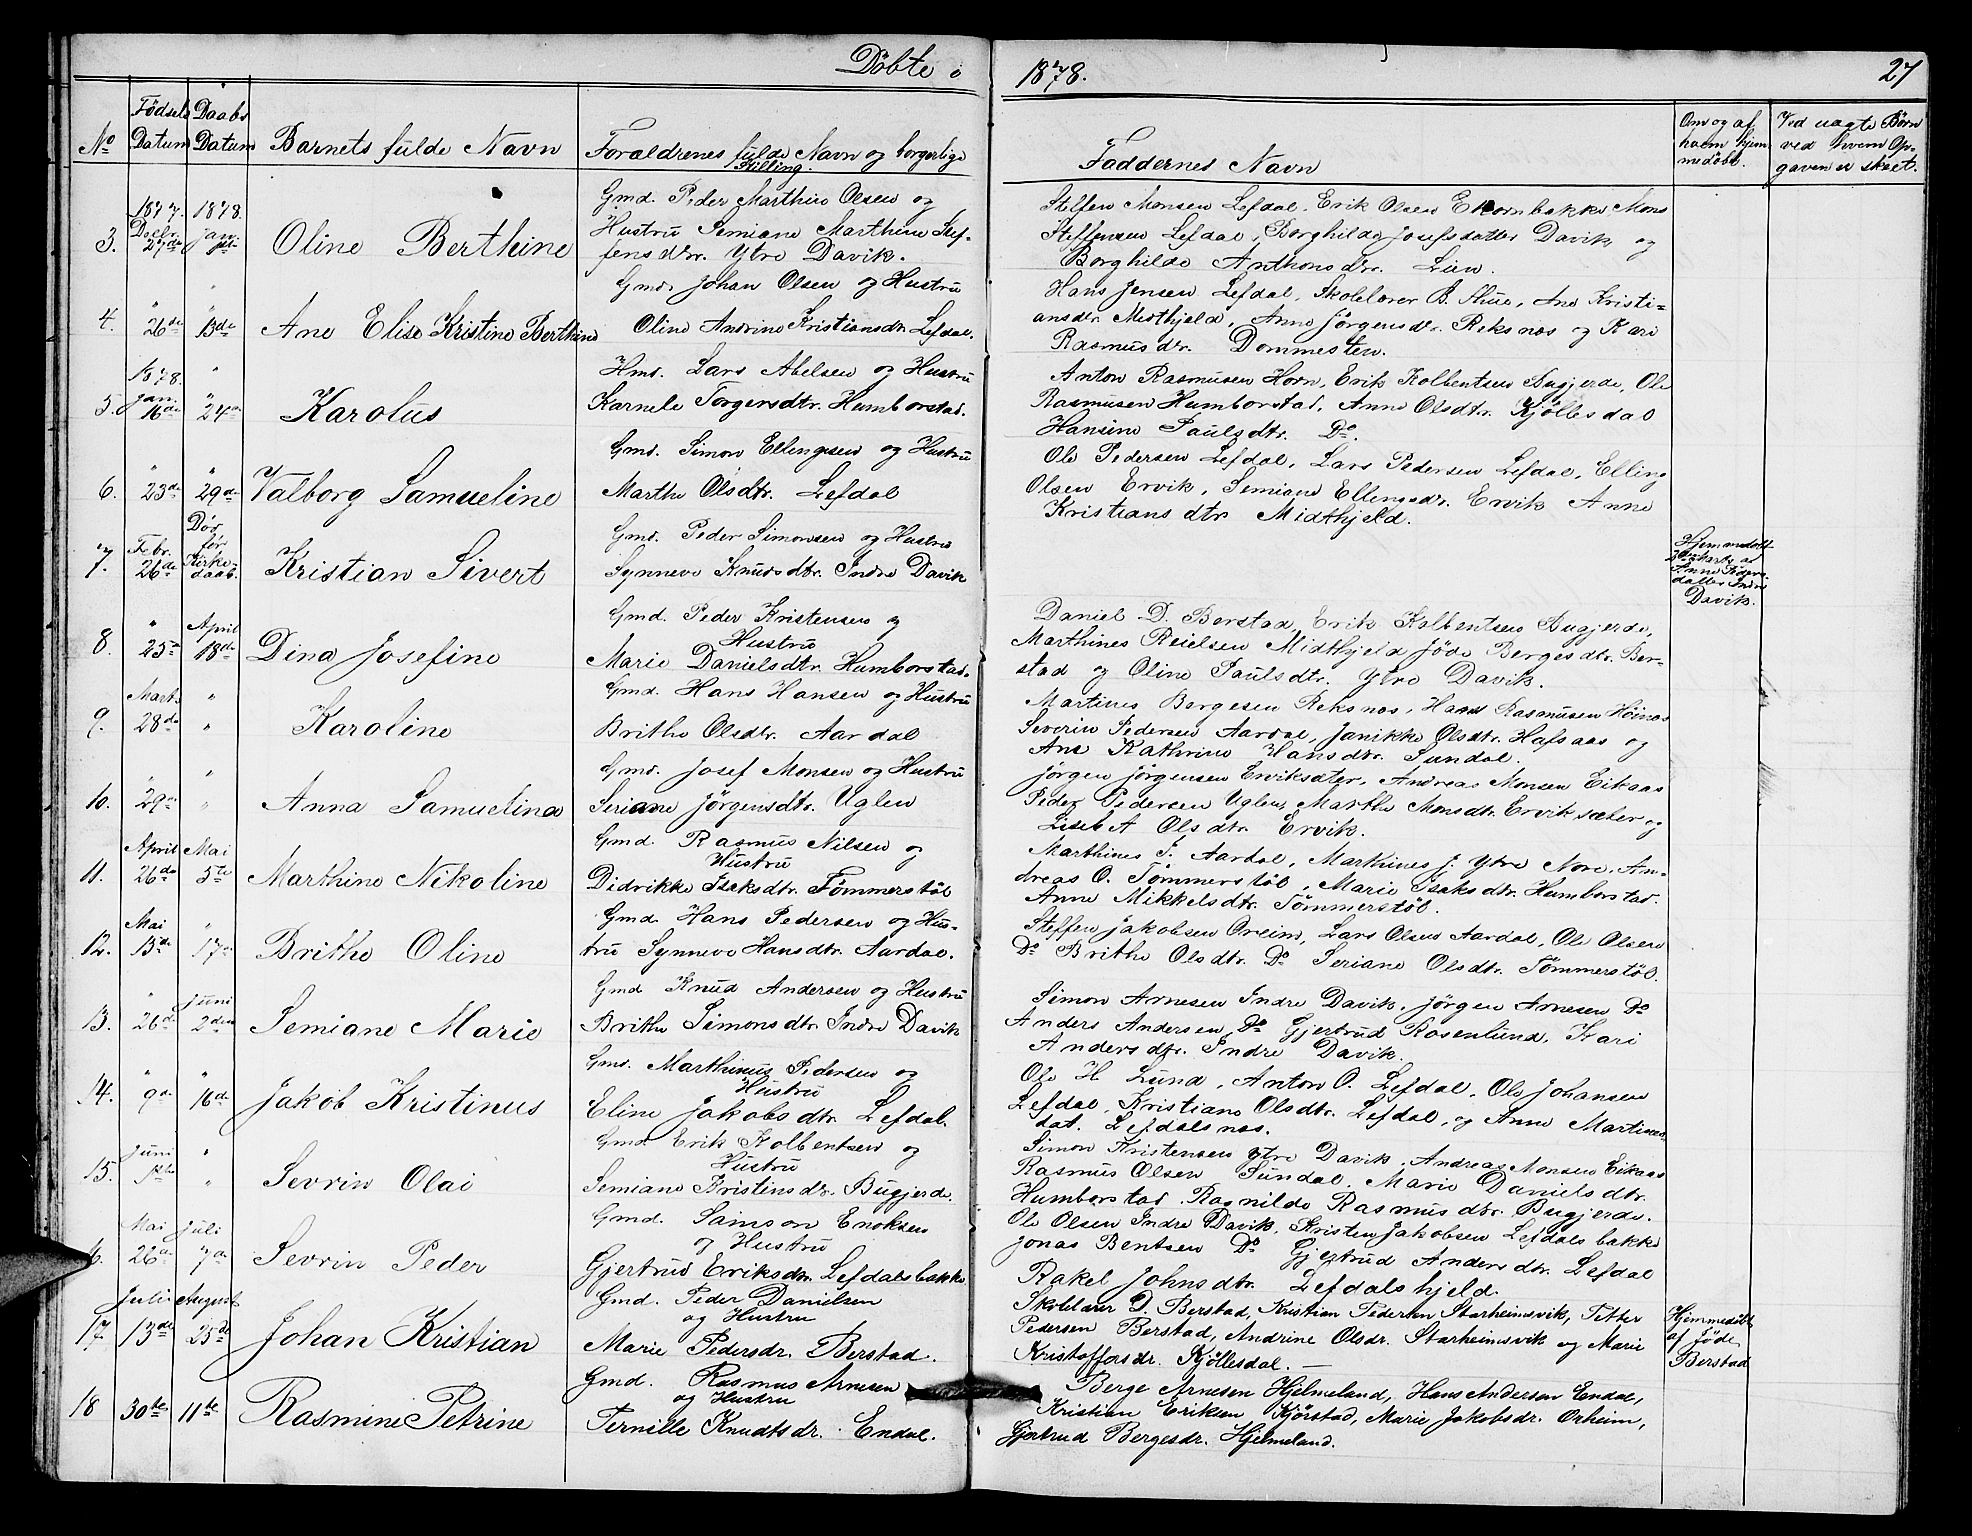 Döbte i
1878.
27
No
Födsels Datum
Daabs Datum
Barnets fulde Navn
Foraldrenes fulde Navn og borgerlige Stilling.
Faddernes Navn
Om og af hvem hjemmedöbt.
Ved uægte Börn ved hvem Opgaven er skeet.
3.
1877. Decbr. 27de
1878. Jan.
Oline Berthine
Gmd. Peder Marthin Olsen og
Hustru Semiane Marthine Stef-
fensdtr. Ytre Davik.
Steffen Monsen Lefdal, Erik Olsen Ekornbakke Mons
Steffensen Lefdal, Borghilde Josefsdatter Davik og
Borghilde Anthonsdtr. Lien.
4.
" 26de
" 13de
Ane Elise Kristine Berthine
Gmd. Johan Olsen og Hustru
Oline Andrine Kristiansdtr. Lefdal.
Hans Jensen Lefdal, Skolelærer B. Hue, Ane Kristi-
ansdtr. Midthjeld, Anne Jörgensdtr. Reksnæs og Kari
Rasmusdtr. Dommesten.
5.
1878. Jan. 16de
" 24de
Karolus
Hmd. Lars Abelsen og Hustru
Karnele Torgersdtr. Humborstad.
Anton Rasmusen Horn, Erik Kolbentsen Bugjerde, Ole
Rasmusen Humborstad, Anne Olsdtr. Kjöllesdal
Hansine Paulsdtr. Do.
6.
" 23de
" 29de
Valborg Samueline
Gmd. Simon Ellengsen og Hustru
Marthe Olsdtr. Lefdal
Ole Pedersen Lefdal, Lars Pedersen Lefdal, Elling
Olsen Ervik, Semiane Ellengsdtr. Ervik Anne
Kristiansdtr. Midthjeld.
7.
Febr. 26de
Död för Kirkedaab.
Kristian Sivert
Gmd. Peder Simonsen og Hustru
Synneve Knudsdtr. Indre Davik
Hjemmedöbt
datter Indre
Davik.
8.
" 25de
April 18de
Dina Josefine
Gmd. Peder Kristensen og
Hustru
Marie Danielsdtr. Humborstad.
Daniel D. Berstad, Erik Kolbentsen Bugjerde,
Marthines Reielsen Midthjeld Jöde Bergesdtr. Ber-
stad og Oline Paulsdtr. Ytre Davik.
9.
Marts 28de
" "
Karoline
Gmd. Hans Hansen og Hustru
Brithe Olsdtr. Aardal
Martines Bergesen Reksnæs, Hans Rasmusen Höinæs
Severin Pedersen Aardal, Janikke Olsdtr. Hafsaas og
Ane Kathrine Hansdtr. Sundal.
10.
" 29de
" "
Anna Samuelina
Gmd. Josef Monsen og Hustru
Seriane Jörgensdtr. Uglen
Jörgen Jörgensen Erviksæter, Andreas Monsen Eikaas
Peder Pedersen Uglen, Marthe Monsdtr. Erviksæter og
Lisebet Olsdtr. Ervik.
11.
April 26de
Mai 5te
Marthine Nikoline
Gmd. Rasmus Nilsen og
Hustru
Didrikke Isaksdtr. Tömmerstöl
Marthines I. Aardal, Marthines J. Ytre Nore, An-
dreas O. Tömmerstöl, Marie Isaksdtr. Humborstad.
Anne Mikkelsdtr. Tömmerstöl.
12.
Mai 13de
" 17de
Brithe Oline
Gmd. Hans Pedersen og Hus-
tru Synneve Hansdtr. Aardal.
Steffen Jakobsen Oreim, Lars Olsen Aardal, Ole Olsen
Do Brithe Olsdtr. Do Seriane Olsdtr. Tömmerstöl.
13.
" 26de
Juni 2den
Semiane Marie
Gmd Knud Andersen og Hustru
Brithe Simonsdtr. Indre Davik
Simon Arnesen Indre Davik, Jörgen Arnesen Do
Anders Andersen, Do Gjertrud Rosenlund, Kari
Andersdtr. Indre Davik.
14.
" 9de
" 16de
Jakob Kristinus
Gmd. Marthinus Pedersen og
Hustru
Eline Jakobsdtr. Lefdal.
Ole H Lund, Anton O. Lefdal, Ole Johansen
Lefdal, Kristiane Olsdtr. Lefdal, og Anne Martines-
dat. Lefdalsnæs.
15.
Juni 1ste
" "
Sevrin Olai
Gmd. Erik Kolbentsen og
Hustru
Semiane Kristensdtr. Bugjerde.
Simon Kristensen ytre Davik, Andreas Monsen Eikaas
Rasmus Olsen Sundal, Marie Danielsdtr.
Humborstad, Ragnilde Rasmusdtr. Bugjerde.
16.
Mai 22de
Juli 7de
Sevrin Peder
Gmd. Samson Enoksen
og Hustru
Gjertrud Eriksdtr. Lefdalsbakke
Ole Olsen Indre Davik, Kristen Jakobsen Lefdalsbakke
Jonas Bentsen Do Gjertrud Andersdtr. Lefdal
Rakel Johnsdtr. Lefdalshjeld.
17.
Juli 13de
August 25de
Johan Kristian
Gmd. Peder Danielsen
og Hustru
Marie Pedersdr. Berstad.
Skolelærer D. Berstad, Kristian Pedersen Starheimsvik, Petter
Pedersen Berstad, Andrine Olsdr. Starheimsvik og Marie
Kristoffersdr. Kjöllesdal. —
Hjemmedöbt
af Jöde
Berstad
18
30te
11te
Rasmine Petrine
Gmd. Rasmus Arnesen
og Hustru
Pernille Knudtsdr. Endal.
Berge Arnesen Hjelmeland, Hans Andersen Endal,
Kristian Eriksen Kjörstad, Marie Jakobsdr. Orheim,
Gjertrud Bergesdr. Hjelmeland.